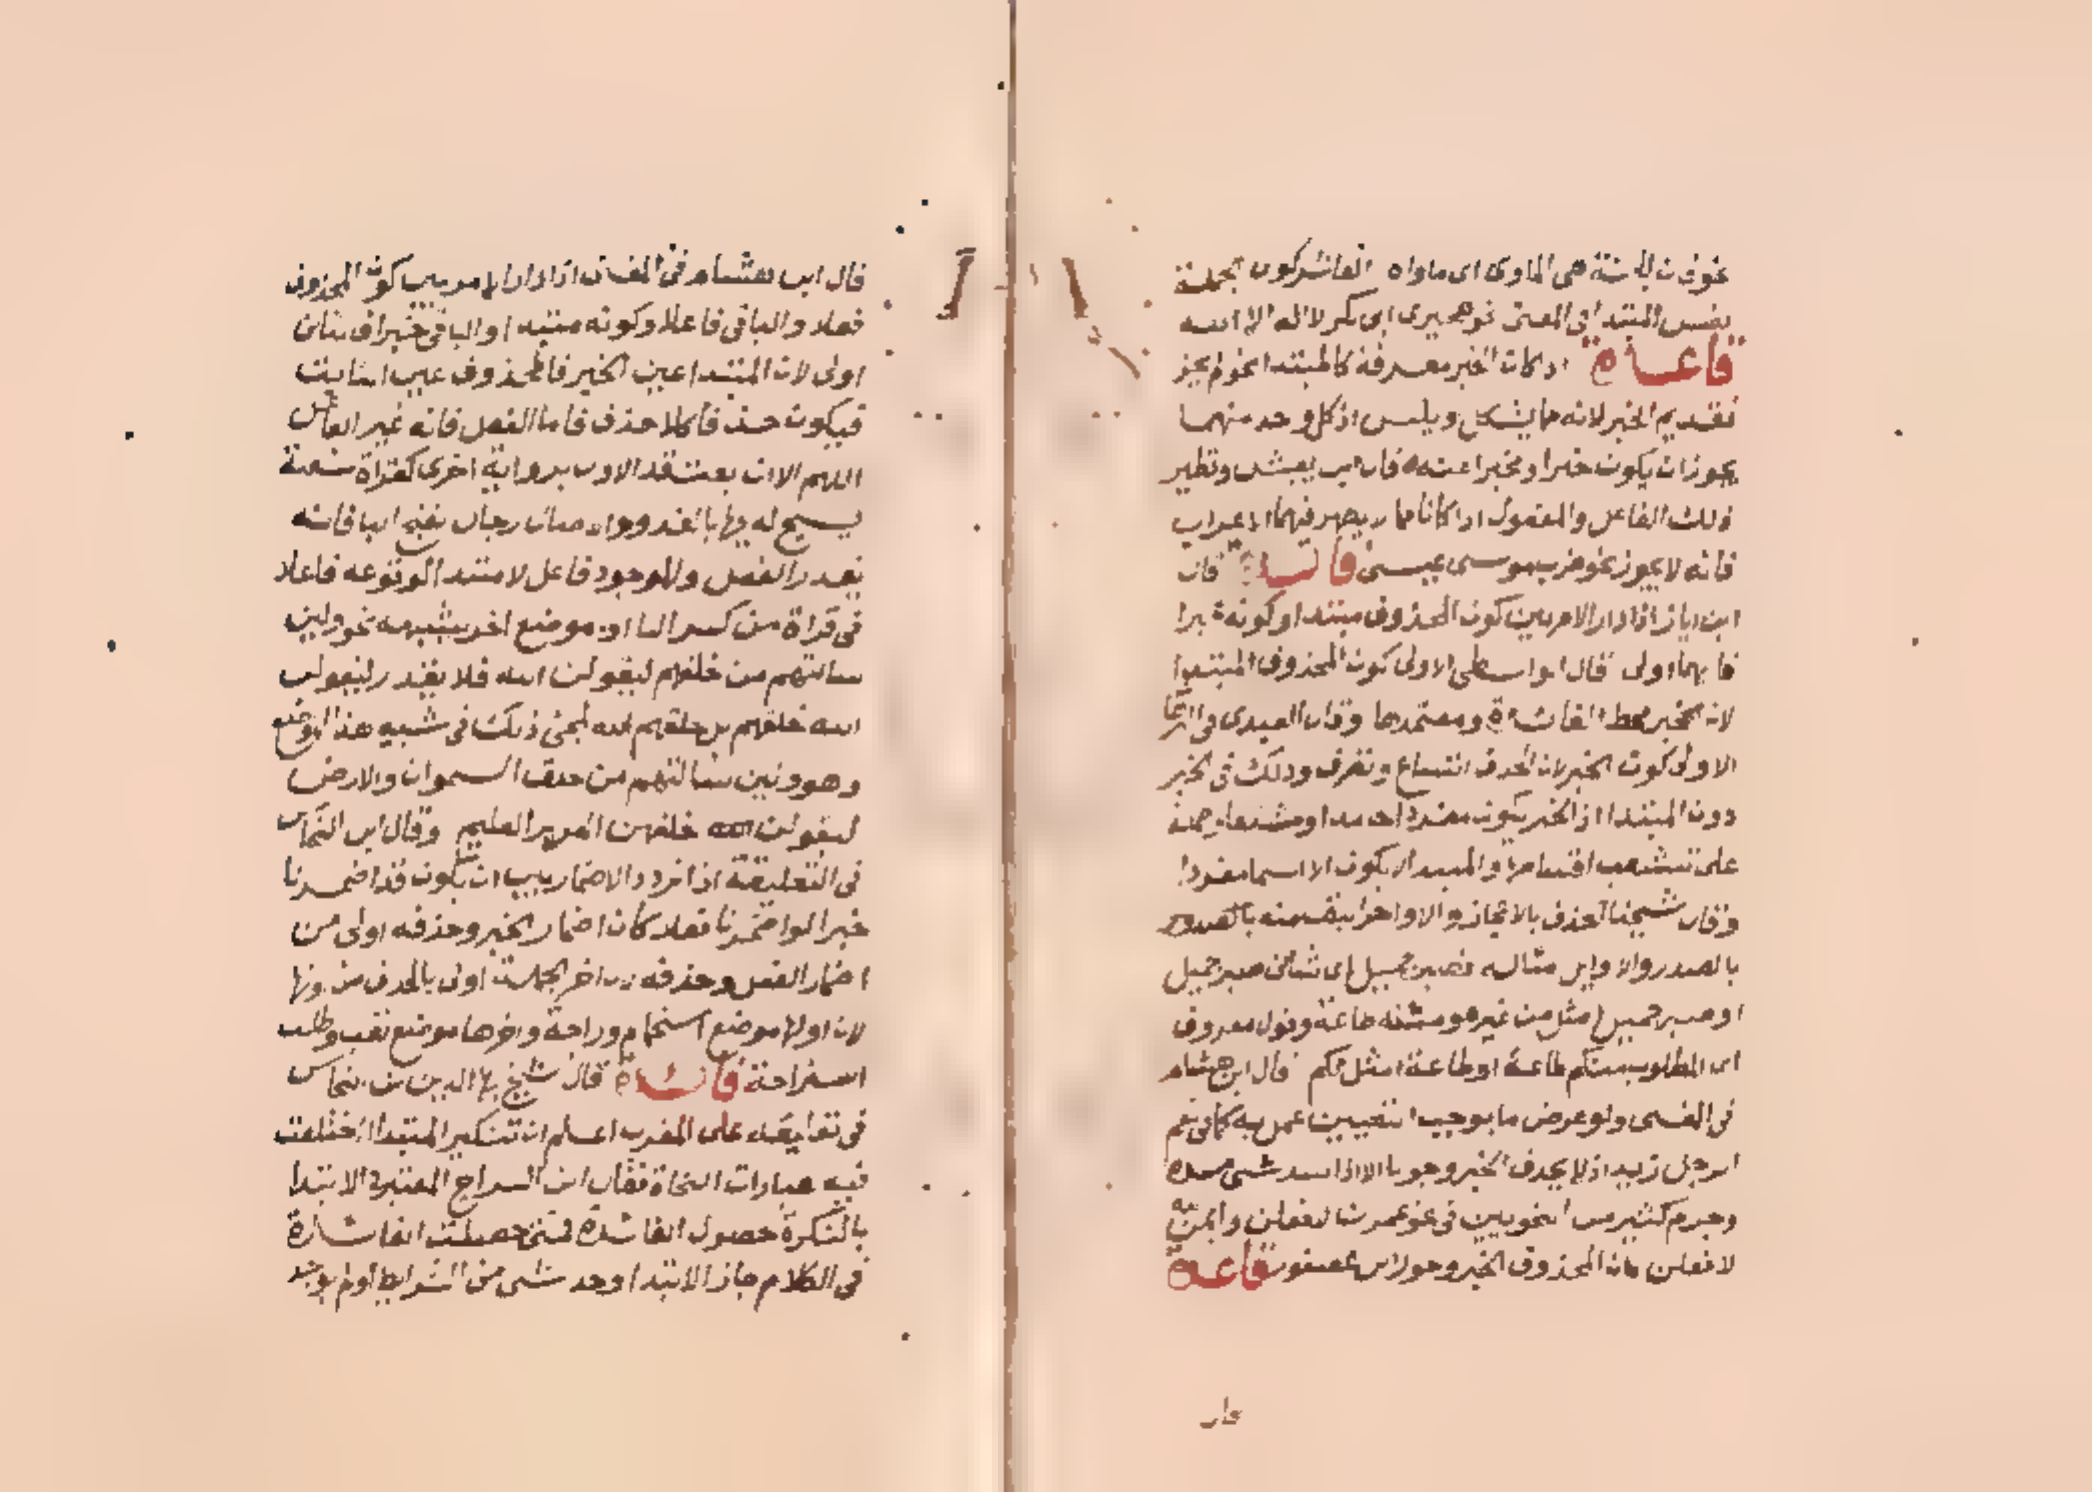 نحو فان الجنة هي الماوى اى ماواه العاشر كون الجملة
نفس المبتدا في المعنى نحو هجيرى ابى بكر لا اله الا الله
قاعدة اذا كان الخبر معرفة كالمبتدا لم يجز
تقديم الخبر لانه مما يشكل ويلبس اذ كل واحد منهما
يجوز ان يكون خبرا ومخبرا عنه قال ابن يعيش ونظير
ذلك الفاعل والمفعول اذا كانا مما لا يظهر فيهما الاعراب
فانه لا يجوز نحو ضرب موسى عيسى فائدة قال
ابن اياز اذا دار الامر بين كون المحذوف مبتدا او كونه خبرا
فايهما اولى قال الواسطي الاولى كون المحذوف المبتدا
لان الخبر محط الفائدة ومعتمدها وقال العبدى في البرهان
الاولى كون الخبر لان الحذف اتساع وتصرف وذلك في الخبر
دون المبتدا اذ الخبر يكون مفردا جامدا ومشتقا وجملة
على تشعب اقسامها والمبتدا لا يكون الا اسما مفردا
وقال شيخنا الحذف بالاعجاز والاواخر اليق منه بالصدور
والاوايل مثاله فصبر جميل اى شانى صبر جميل
او صبر جميل امثل من غيره ومثله طاعة وقول معروف
اى المطلوب منكم طاعة او طاعة امثل لكم قال ابن هشام
في المغنى ولو عرض ما يوجب التعيين عمل به كما في نعم
الرجل زيد اذ لا يحذف الخبر وجوبا الا اذا سد شى مسده
وجزم كثير من النحويين في نحو عمرك لافعلن وايمن الله
لافعلن بان المحذوف الخبر وجوز ابن عصفور قاعدة
قال
قال ابن هشام في المغنى اذا دار الامر بين كون المحذوف
فعلا والباقى فاعلا وكونه مبتدا والباقى خبرا فالثانى
اولى لان المبتدا عين الخبر فالمحذوف عين الثابت
فيكون حذفا كلا حذف فاما الفعل فانه غير الفاعل
اللهم الا ان يعتضد الاول برواية اخرى كقراة شعبة
يسبح له فيها بالغدو والاصال رجال بفتح البا فانه
يقدر الفعل والموجود فاعل لا مبتدا لوقوعه فاعلا
في قراة من كسر البا او بموضع اخر يشبهه نحو ولين
سالتهم من خلقهم ليقولن الله فلا يقدر ليقولن
الله خلقهم بل خلقهم الله لمجى ذلك في شبيه هذا الموضع
وهو ولين سالتهم من خلق السموات والارض
ليقولن الله خلقهن العزيز العليم وقال ابن النحاس
في التعليقة اذا تردد الاضمار بين ان يكون قد اضمرنا
خبرا او اضمرنا فعلا كان اضمار الخبر وحذفه اولى من
اضمار الفعل وحذفه اخر الجملة اولى بالحذف من اولها
لان اولها موضع استجمام وراحة واخرها موضع تعب وطلب
استراحة فائدة قال الشيخ بها الدين بن النحاس
في تعليقه على المقرب اعلم ان تنكير المبتدا اختلفت
فيه عبارات النحاة فقال ابن السراج المعتبر في الابتدا
بالنكرة حصول الفائدة فمتى حصلت الفائدة
في الكلام جاز الابتدا وجد شى من الشرايط او لم يوجد